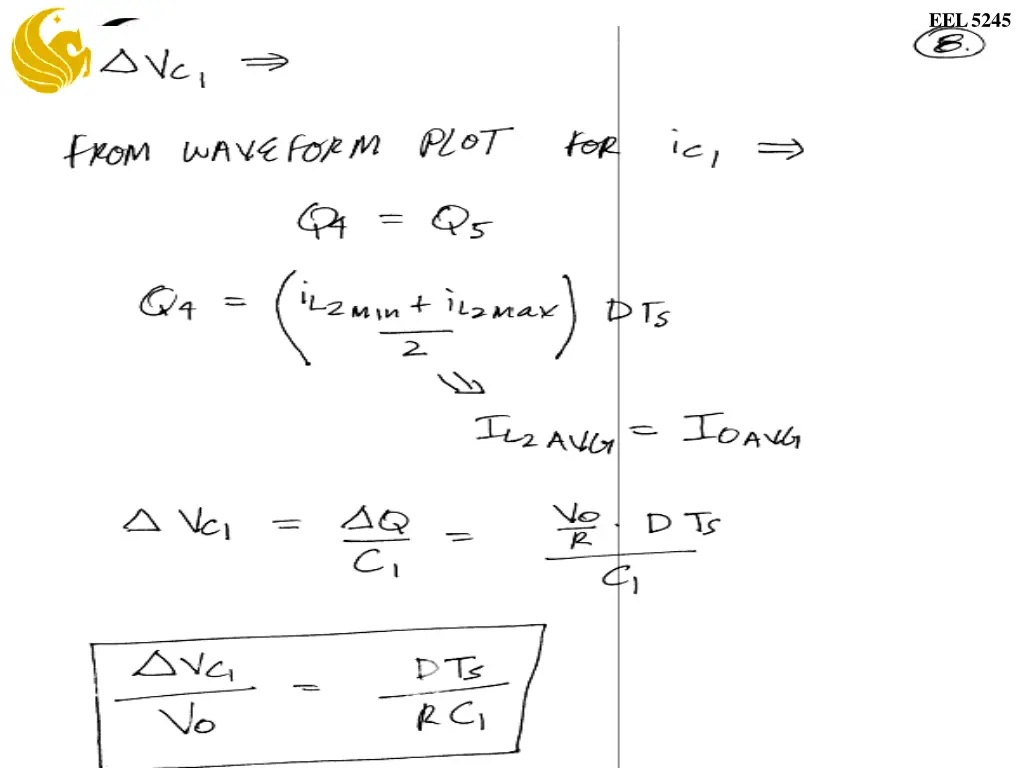 EEL 5245
8.
Δ Vc₁ ⇒
FROM WAVEFORM PLOT FOR ic₁ ⇒
Q4 = Q5
Q4 = (iL2min + iL2max / 2) DTs
⇒
IL2AVG = IOAVG
Δ Vc₁ = ΔQ / C₁ = Vo/R · DTs / C₁
ΔVc₁ / Vo = DTs / RC₁